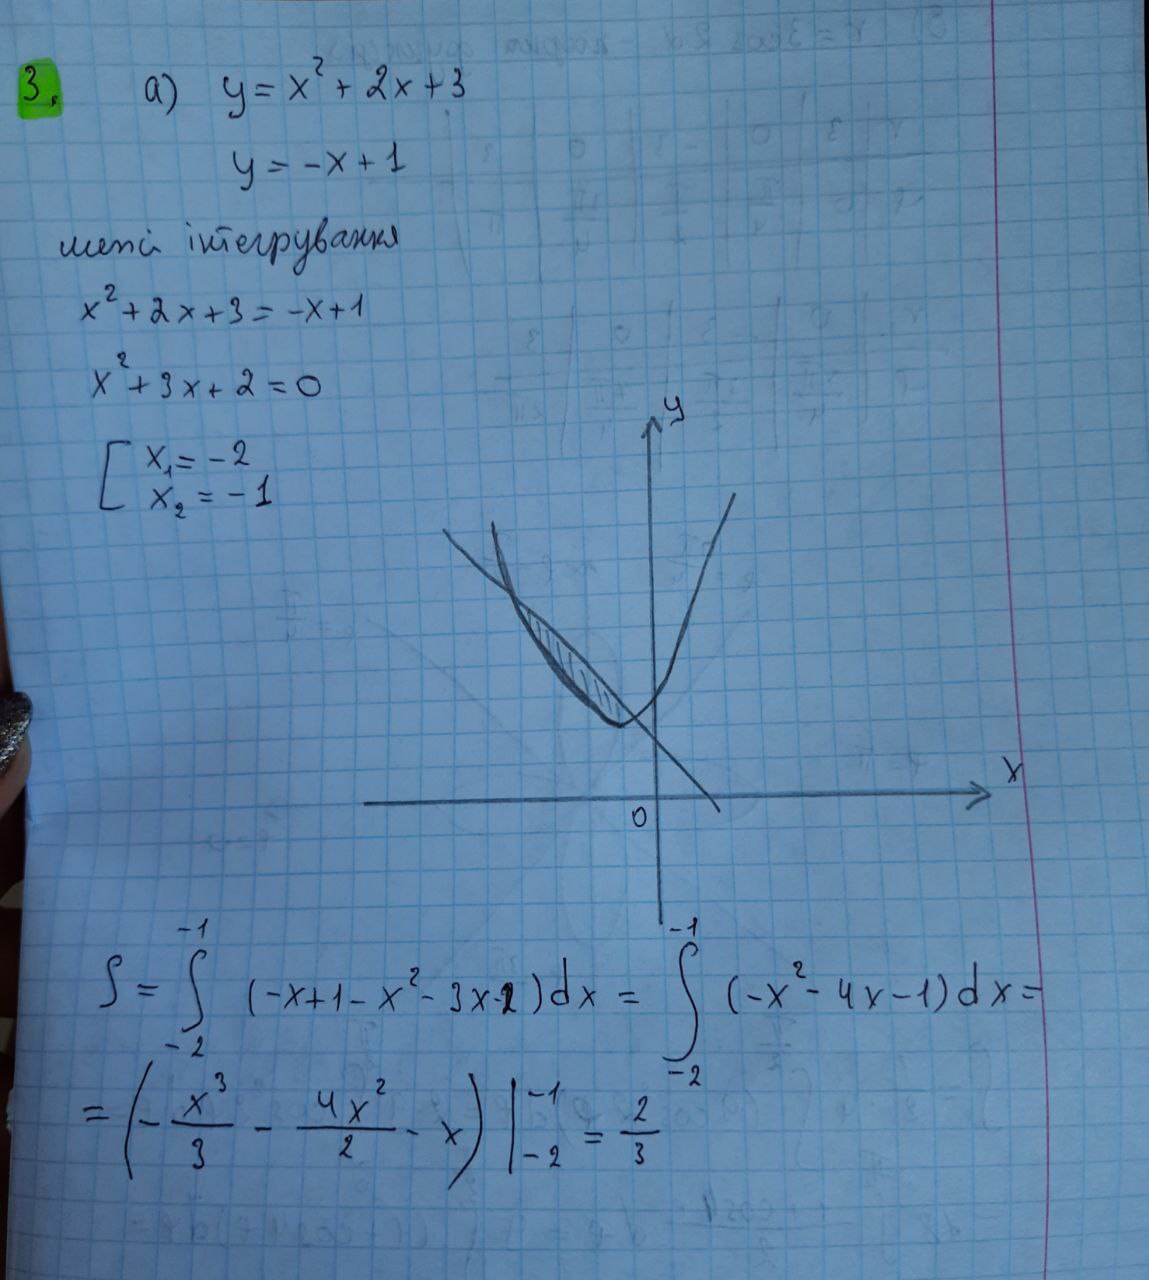 3. а) y = x² + 2x + 3
y = -x + 1
межі інтегрування
x² + 2x + 3 = -x + 1
x² + 3x + 2 = 0
[ x₁ = -2
x₂ = -1
y
x
0
S = ∫₋₂⁻¹ (-x+1-x²-3x-2)dx = ∫₋₂⁻¹ (-x²-4x-1)dx =
= (-x³/3 - 4x²/2 - x) |₋₂⁻¹ = 2/3